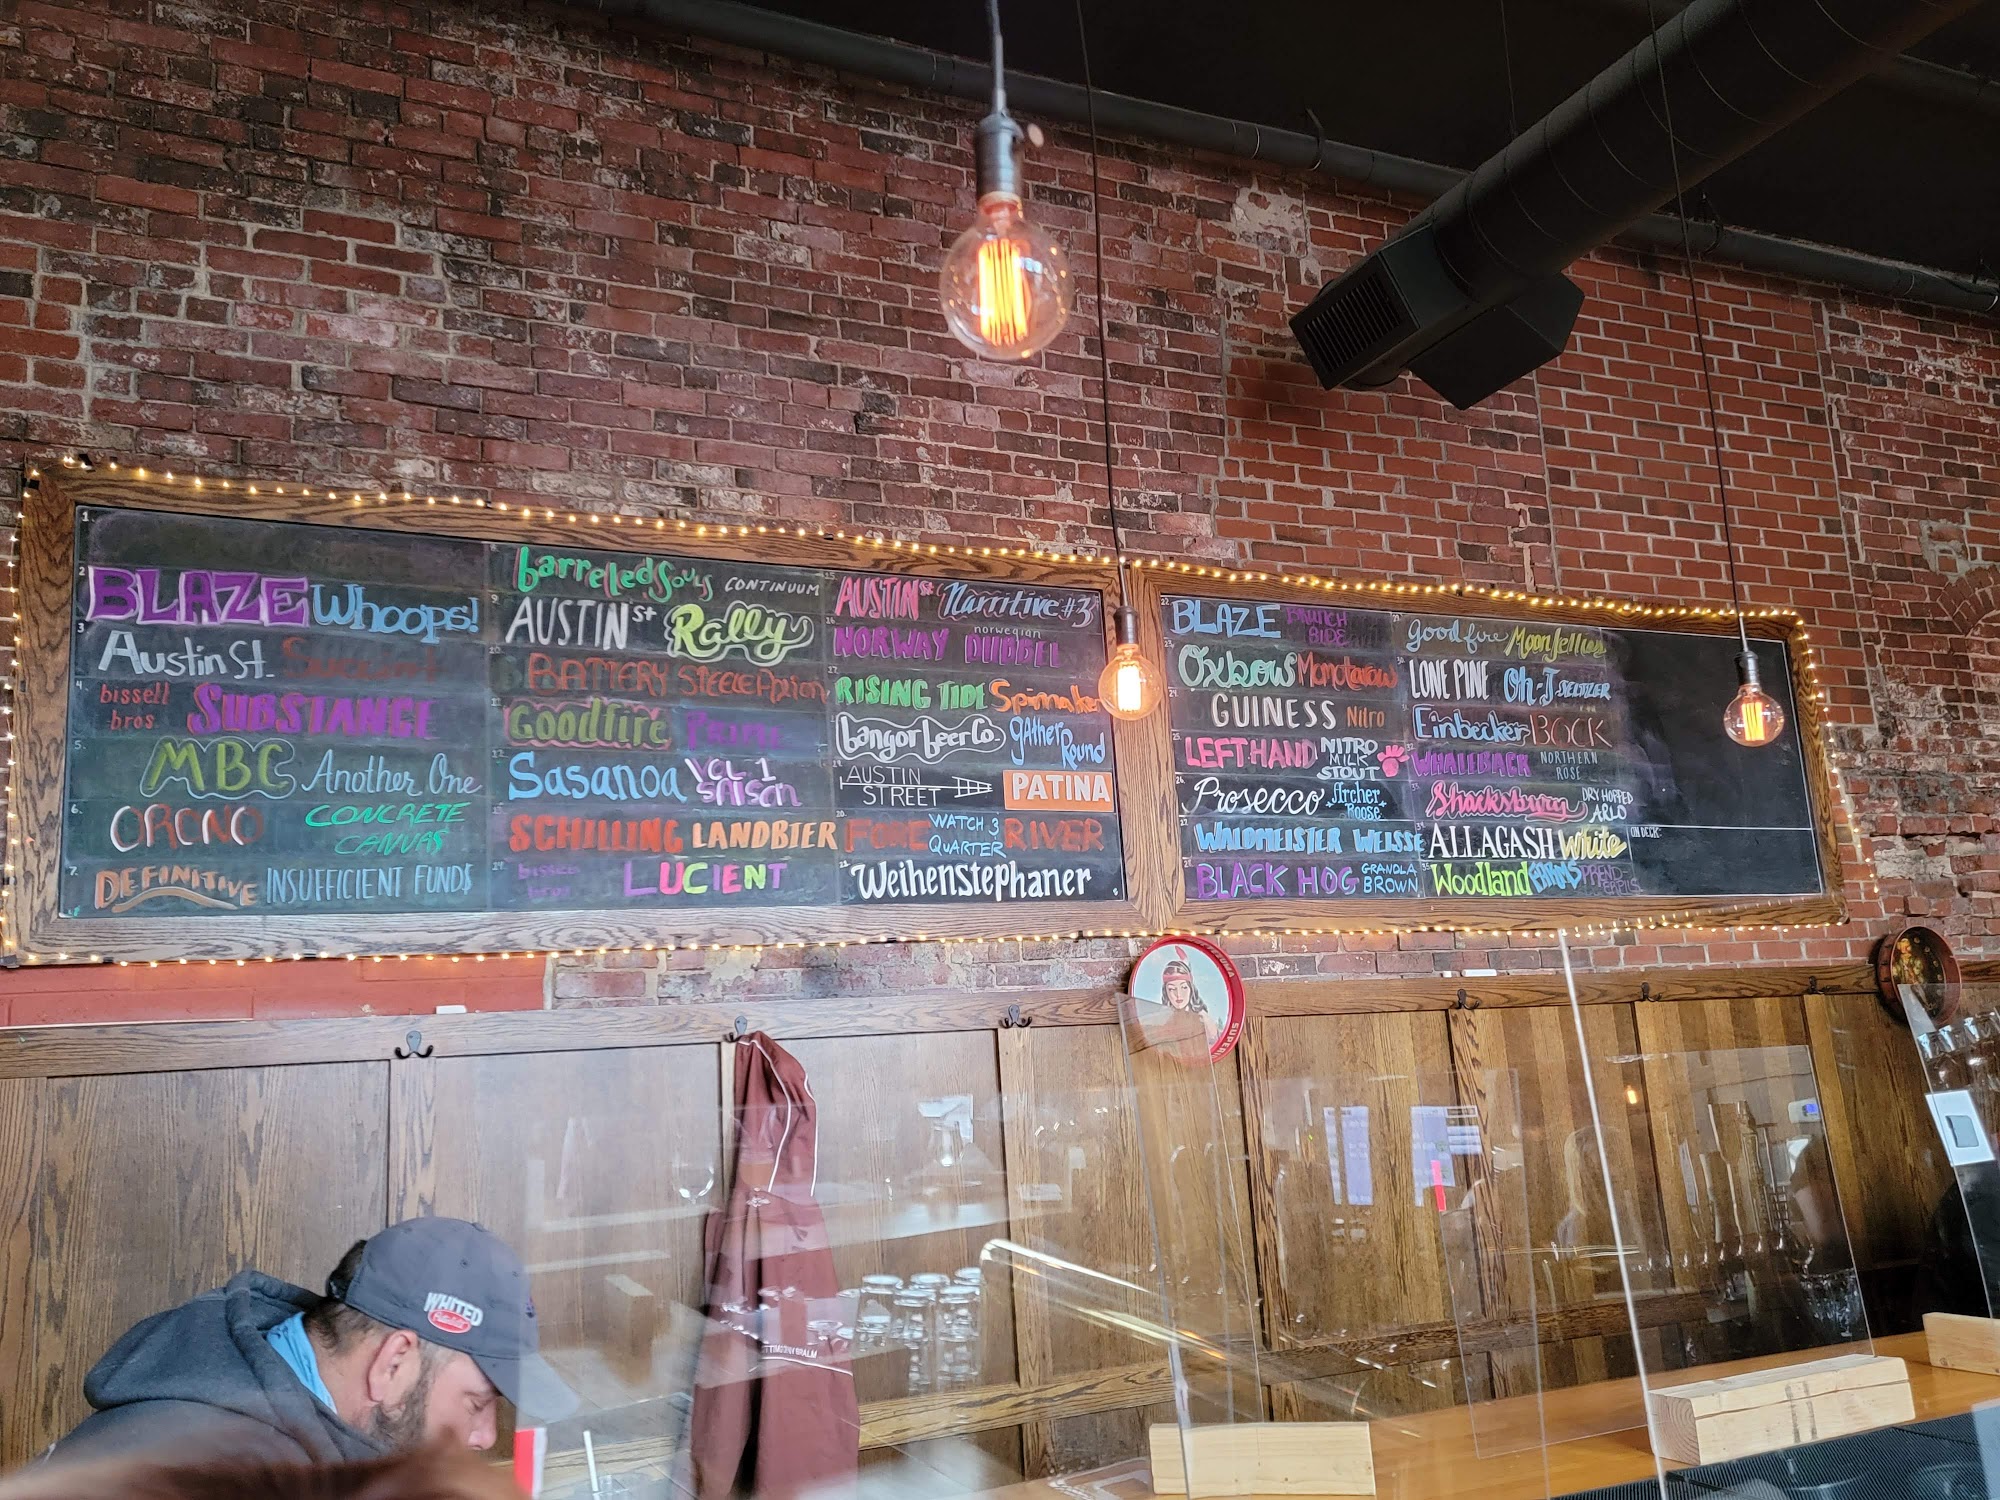 1.
2. BLAZE Whoops!
3. Austin St. Succinct
4. bissell bros SUBSTANCE
5. MBC Another One
6. ORONO CONCRETE CANVAS
7. DEFINITIVE INSUFFICIENT FUND$
8. barreled Souls CONTINUUM
9. AUSTIN St Rally
10. BATTERY STEELE
11. Goodfire PRIME
12. Sasanoa VOL 1 SAISON
13. SCHILLING LANDBIER
14. bissell bros LUCIENT
15. AUSTIN St Narritive #3
16. NORWAY norwegian DUBBEL
17. RISING TIDE Spinnaker
bangor beer Co. gather Round
19. AUSTIN STREET PATINA
20. FORE WATCH 3 QUARTER RIVER
21. Weihenstephaner
22. BLAZE BRUNCH SIDE
23. Oxbow Momotarow
24. GUINESS Nitro
25. LEFTHAND NITRO MILK STOUT
26. Prosecco Archer Roose
27. WALDMEISTER WEISSE
28. BLACK HOG GRANOLA BROWN
29. goodfire Moon Jellies
30. LONE PINE Oh-J SELTZER
31. Einbecker BOCK
32. WHALEBACK NORTHERN ROSE
33. Shacksbury DRY HOPPED ARLO
34. ALLAGASH White
35. Woodland FARMS
ON DECK:
WHITED
Peterbilt